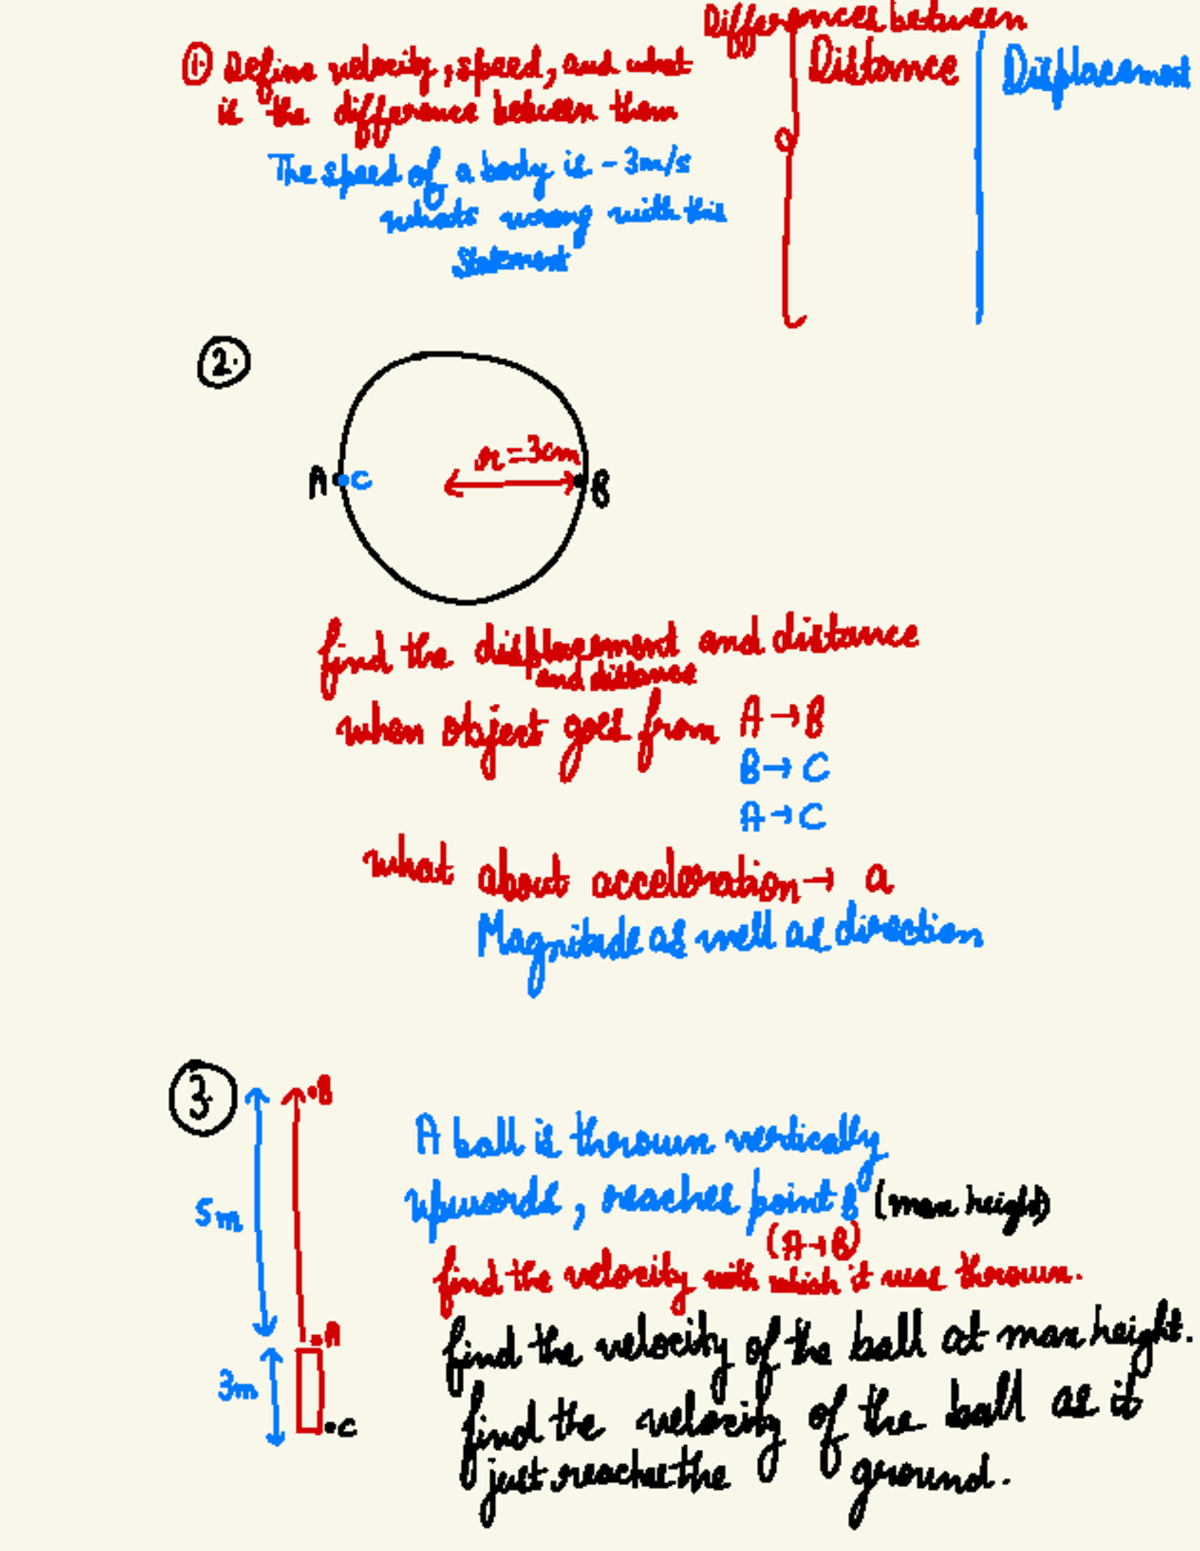 ① Define velocity, speed, and what
is the difference between them
The speed of a body is -3m/s
whats wrong with this
statement
Differences between
Distance
Displacement
②.
r=3cm
A
C
B
find the displacement and distance
and distance
when object goes from A→B
B→C
A→C
what about acceleration→ a
Magnitude as well as direction
③
.B
5m
.A
3m
.C
A ball is thrown vertically
upwards, reaches point B (max height)
(A→B)
find the velocity with which it was thrown.
find the velocity of the ball at max height.
find the velocity of the ball as it
just reaches the ground.